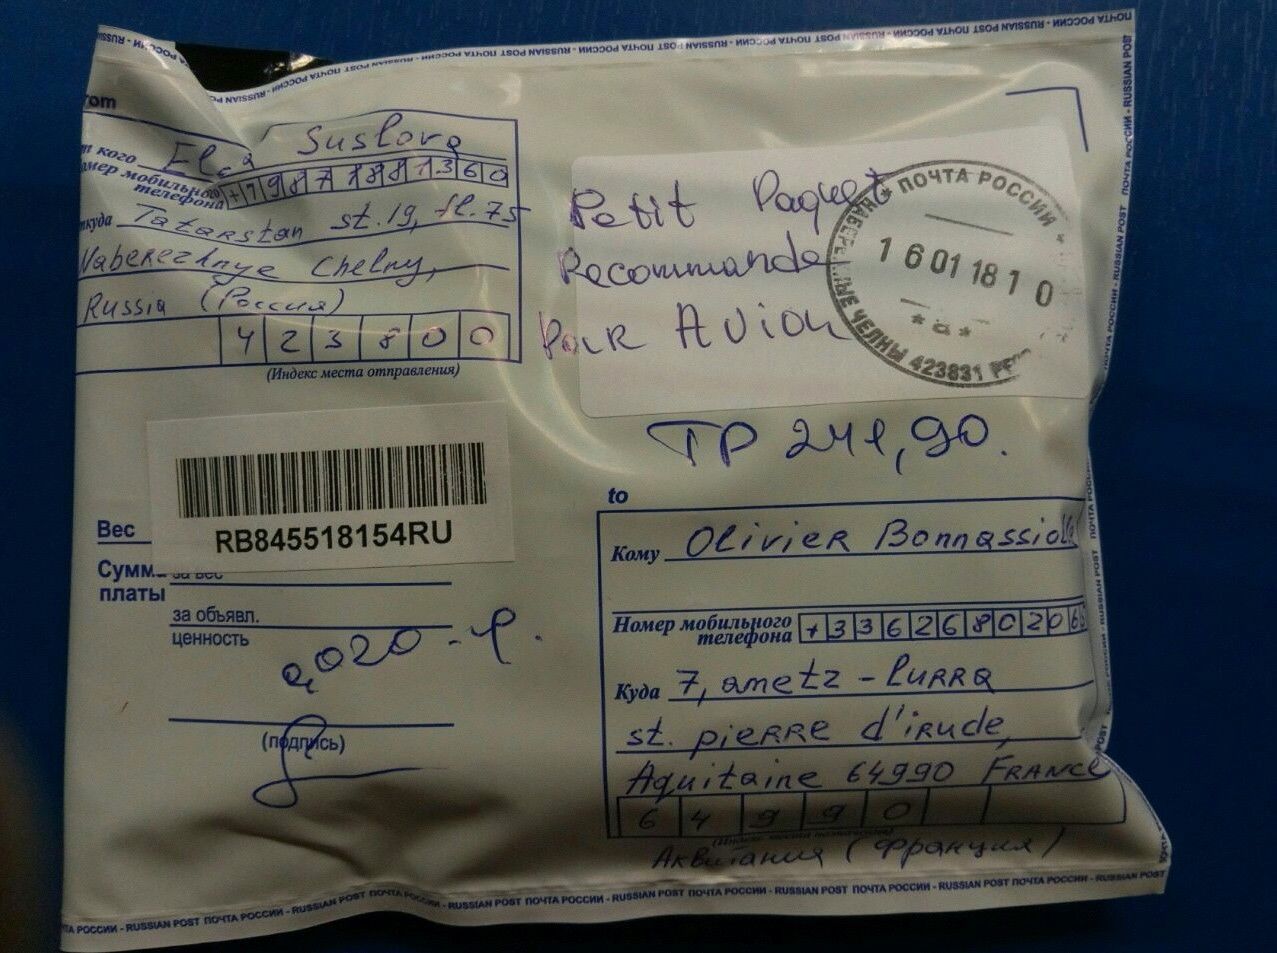 RUSSIAN POST ПОЧТА РОССИИ - RUSSIAN POST ПОЧТА РОССИИ - RUSSIAN POST ПОЧТА РОССИИ - RUSSIAN POST
from
от кого Suslova
Номер мобильного телефона
Откуда Tatarstan st.19, fl.75
Naberezhnye Chelny,
Russia (Россия)
423800
(Индекс места отправления)
Petit Paquet
Recommande
Par Avion
ПОЧТА РОССИИ
НАБЕРЕЖНЫЕ ЧЕЛНЫ 423831
16 01 18 10
*а*
ТР 241,90.
RB845518154RU
Вес
Сумма за вес
платы
за объявл.
ценность
0,020
(подпись)
to
Кому Olivier
Номер мобильного телефона +33626802066
Куда 7, ametz-lurra
st. pierre d'irude,
Aquitaine 64990 France
64990
(Индекс места назначения)
Аквитания (Франция)
ПОЧТА РОССИИ - RUSSIAN POST ПОЧТА РОССИИ - RUSSIAN POST ПОЧТА РОССИИ - RUSSIAN POST ПОЧТА РОССИИ - RUSSIAN POST ПОЧТА РОССИИ - RUSSIAN POST